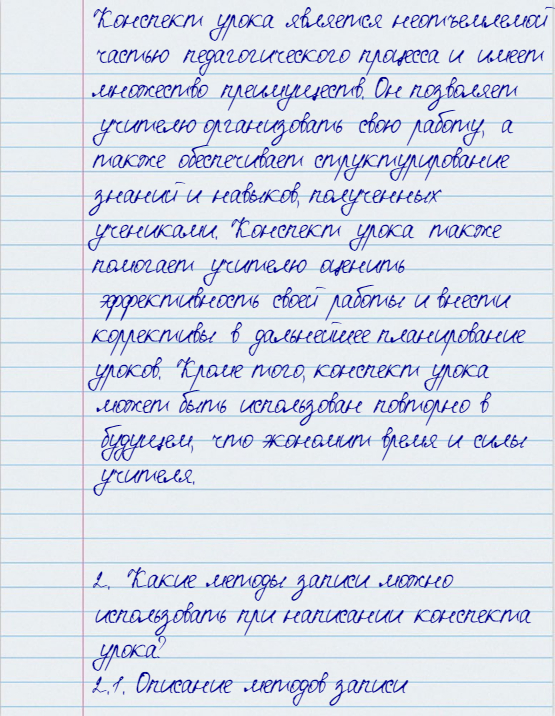 Конспект урока является неотъемлемой
частью педагогического процесса и имеет
множество преимуществ. Он позволяет
учителю организовать свою работу, а
также обеспечивает структурирование
знаний и навыков, полученных
учениками. Конспект урока также
помогает учителю оценить
эффективность своей работы и внести
коррективы в дальнейшее планирование
уроков. Кроме того, конспект урока
может быть использован повторно в
будущем, что экономит время и силы
учителя.
2. Какие методы записи можно
использовать при написании конспекта
урока?
2.1. Описание методов записи